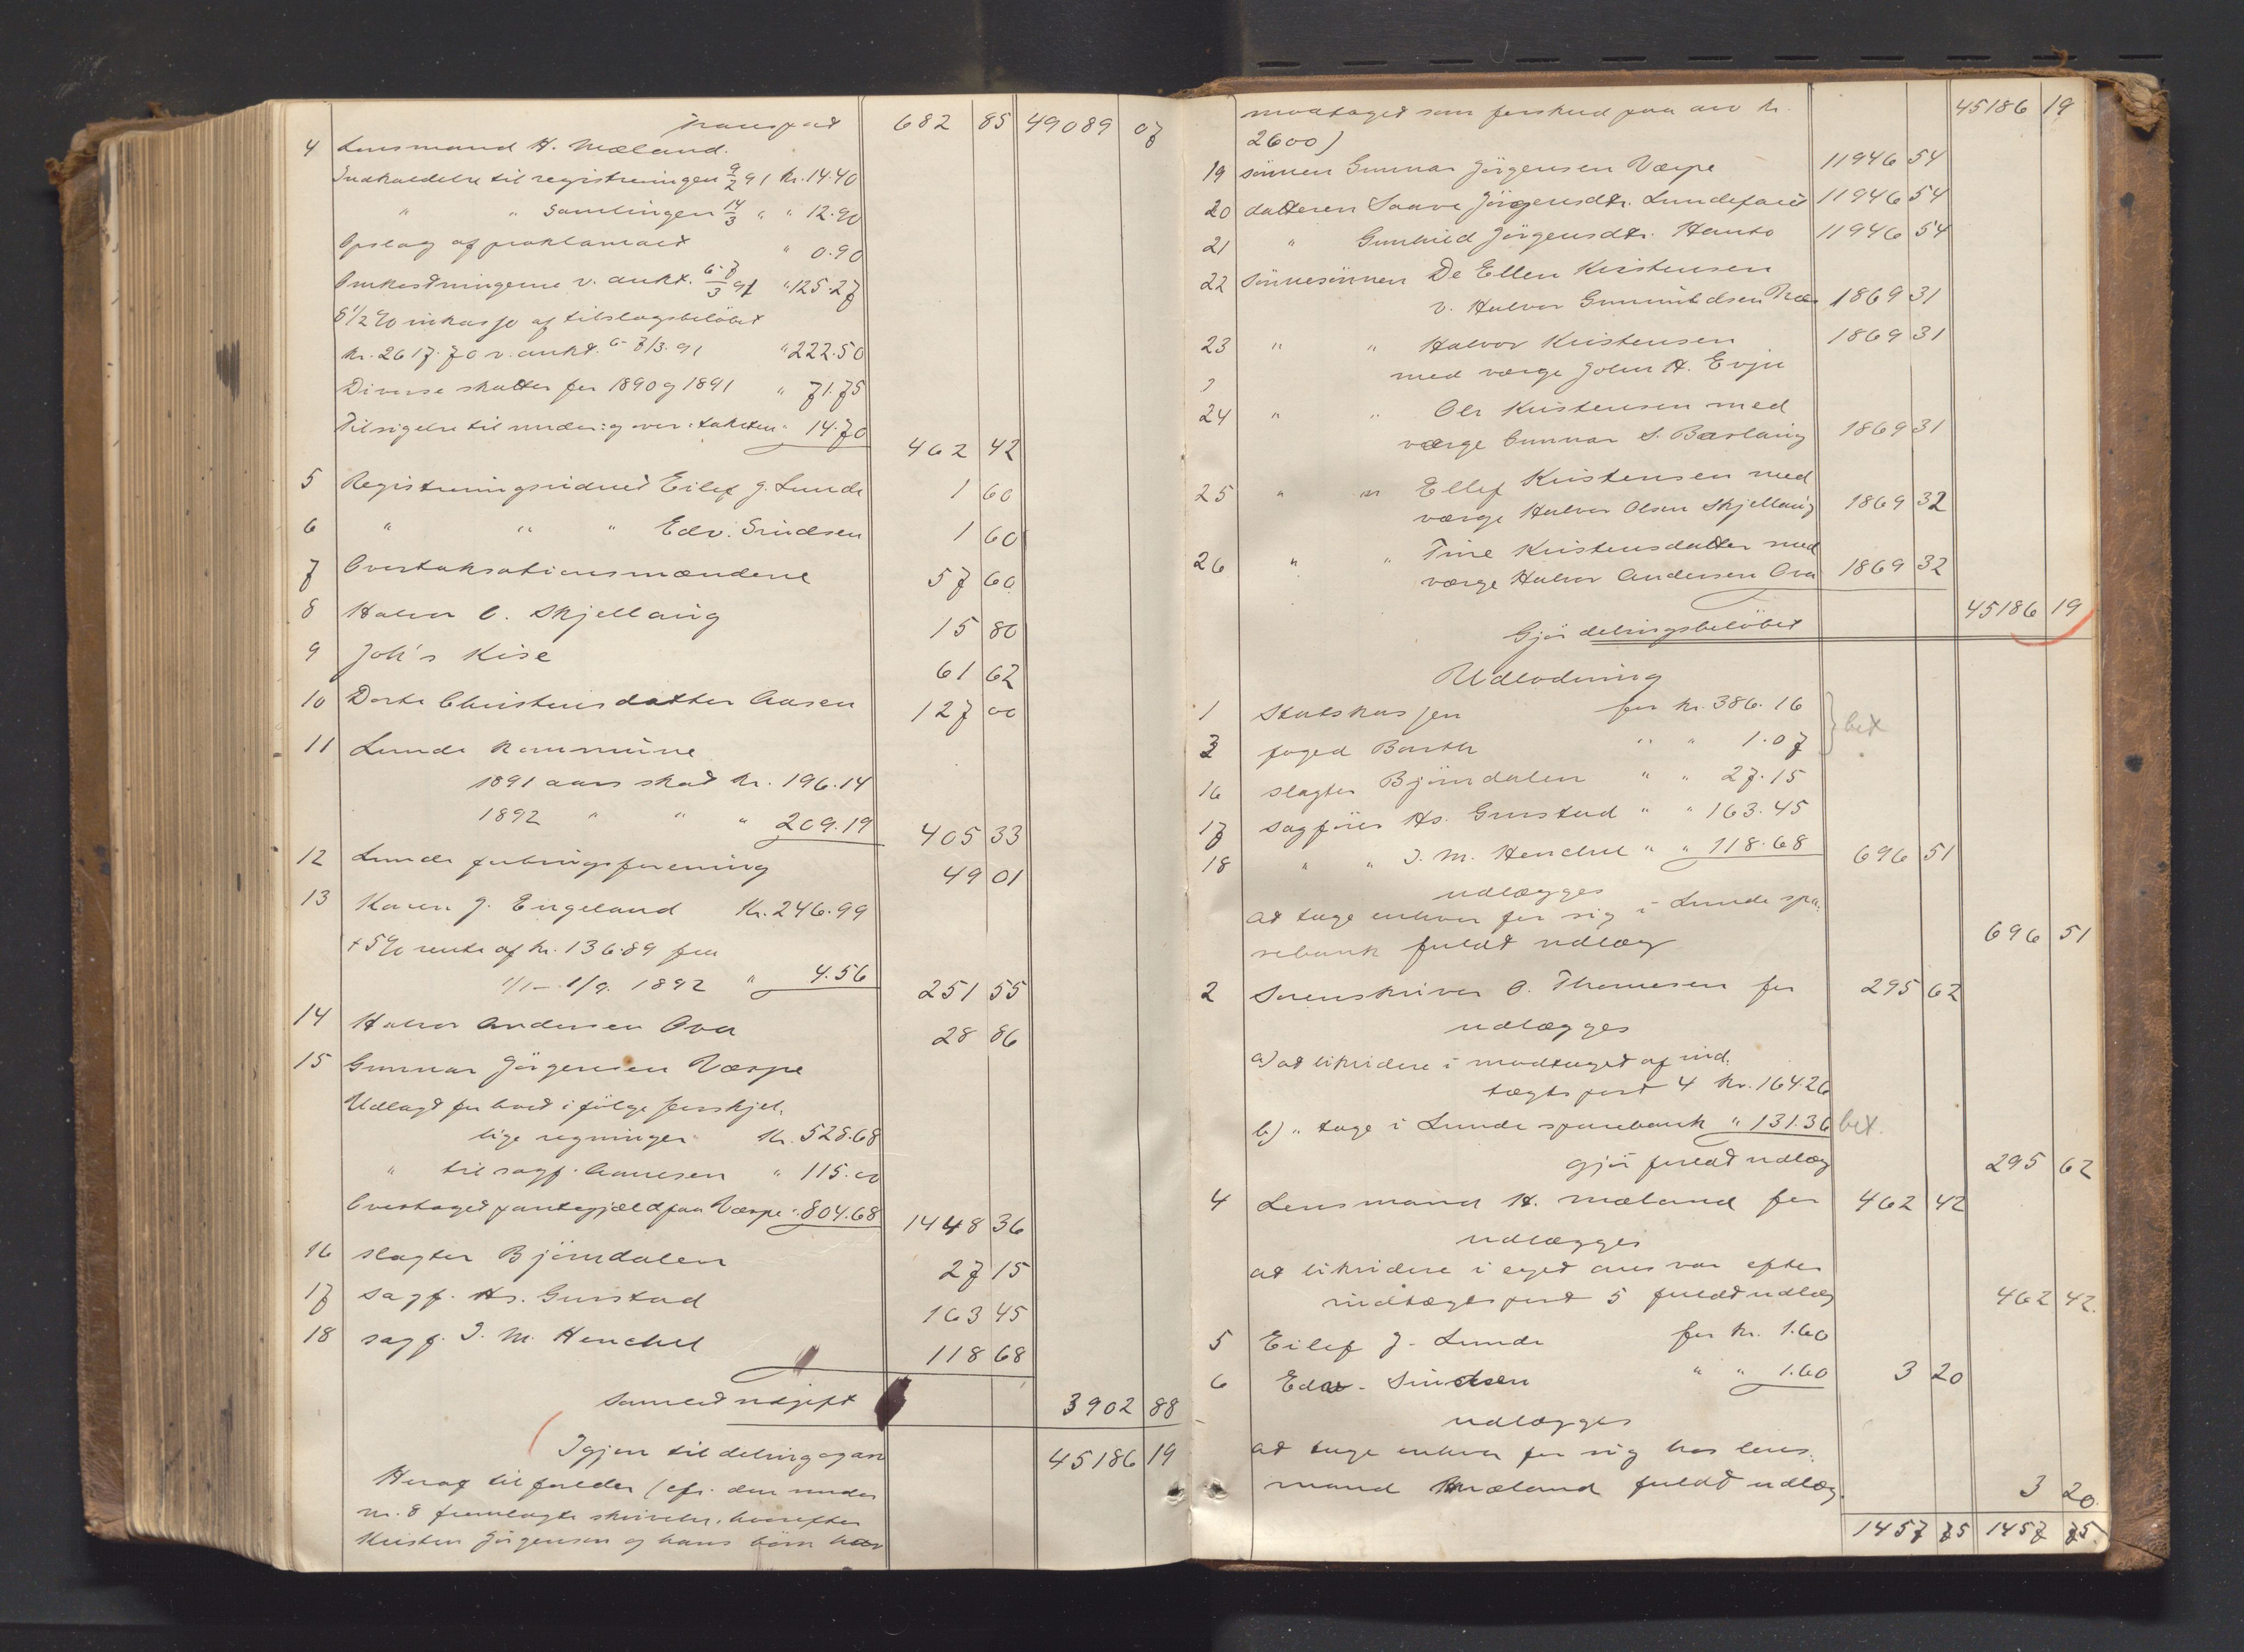 Transport 682 85 49089 07
4 Lensmand H. Mæland.
Indkaldelse til registreringen 9/2 91 kr. 14.40
" " Samlingen 14/3 " " 12.90
Opslag af proklamaet " 0.90
Omkostningerne v. aukt. 6-7/3 91 " 125.27
8 1/2 % inkasso af tilslagsbeløbet
kr. 2617.70 v. aukt. 6-7/3.91 " 222.50
Diverse skatter for 1890 og 1891 " 71.75
Tilsigelse til under: og over: taksten " 14.70 462 42
5 Registreringsvidnet Eilef J. Lunde 1 60
6 " " " Edv. Sindsen 1 60
7 Overtaksationsmændene 57 60
8 Halvor O. Skjellaug 15 80
9 Joh's Kise 61 62
10 Dorte Christensdatter Aasen 127 00
11 Lunde kommune
1891 aars skat kr. 196.14
1892 " " " 209.19 405 33
12 Lunde forbrugsforening 49 01
13 Karen J. Engeland Kr. 246.99
+ 5% rente af kr. 136.89 fra
1/1 - 1/9. 1892 " 4.56 251 55
14 Halvor Andersen Ova 28 86
15 Gunnar Jörgensen Værpe
Udlagt for boet i følge forskjel.
lige regninger Kr. 528.68
" til sagf. Aanesen " 115.00
Overtaget pantegjæld paa Værpe " 804.68 1448 36
16 slagter Björndalen 27 15
17 sagf. Hs. Gurstad 163 45
18 sagf. J. M. Henchel 118 68
Samlet udgift 3902 88
Igjen til deling og arv 45186 19
Heraf tilfalder (cfr. den under
nr. 8 fremlagte skrivelse, hvorefter
Kristen Jörgensen og hans börn har
modtaget som forskud paa arv kr. 45186 19
2600)
19 sönnen Gunnar Jörgensen Værpe 11946 54
20 datteren Saave Jörgensdtr. Lundefaret 11946 54
21 " Gunhild Jörgensdtr. Hauto 11946 54
22 Sönnesönnen De Ellen Kristensen
v. Halvor Gunnuldsen 1869 31
23 " " Halvor Kristensen 1869 31
med værge John A. Evju
24 " " Ole Kristensen med
værge Gunnar S. Baslaug 1869 31
25 " " Ellef Kristensen med
værge Halvor Olsen Skjellaug 1869 32
26 " " Tine Kristensdatter med
værge Halvor Andersen Ova 1869 32
Gjör delingsbelöbet 45186 19
Udlodning
1 Statskassen for kr. 386.16
3 foged Barth " " 1.07 bet
16 slagter Björndalen " " 27.15
17 sagförer Hs. Gurstad " " 163.45
18 " " J. M. Henchel " " 118.68 696 51
udlægges
at tage enhver for sig i Lunde spa:
rebank fuldt udlæg 696 51
2 Sorenskriver O. Thomesen for 295 62
udlægges
a) at likvidere i modtaget af ind:
tægtspost 4 kr. 164.26
b) " tage i Lunde sparebank " 131.36 bet.
gjör fuldt udlæg 295 62
4 Lensmand H. Mæland for 462 42
udlægges
at likvidere i eget ansvar efter
indtægtspost 5 fuldt udlæg 462 42.
5 Eilef J. Lunde for kr. 1.60
6 Edv. Sindsen " " 1.60 3 20
udlægges
at tage enhver for sig hos lens:
mand Mæland fuldt udlæg. 3 20.
1457 75 1457 75.